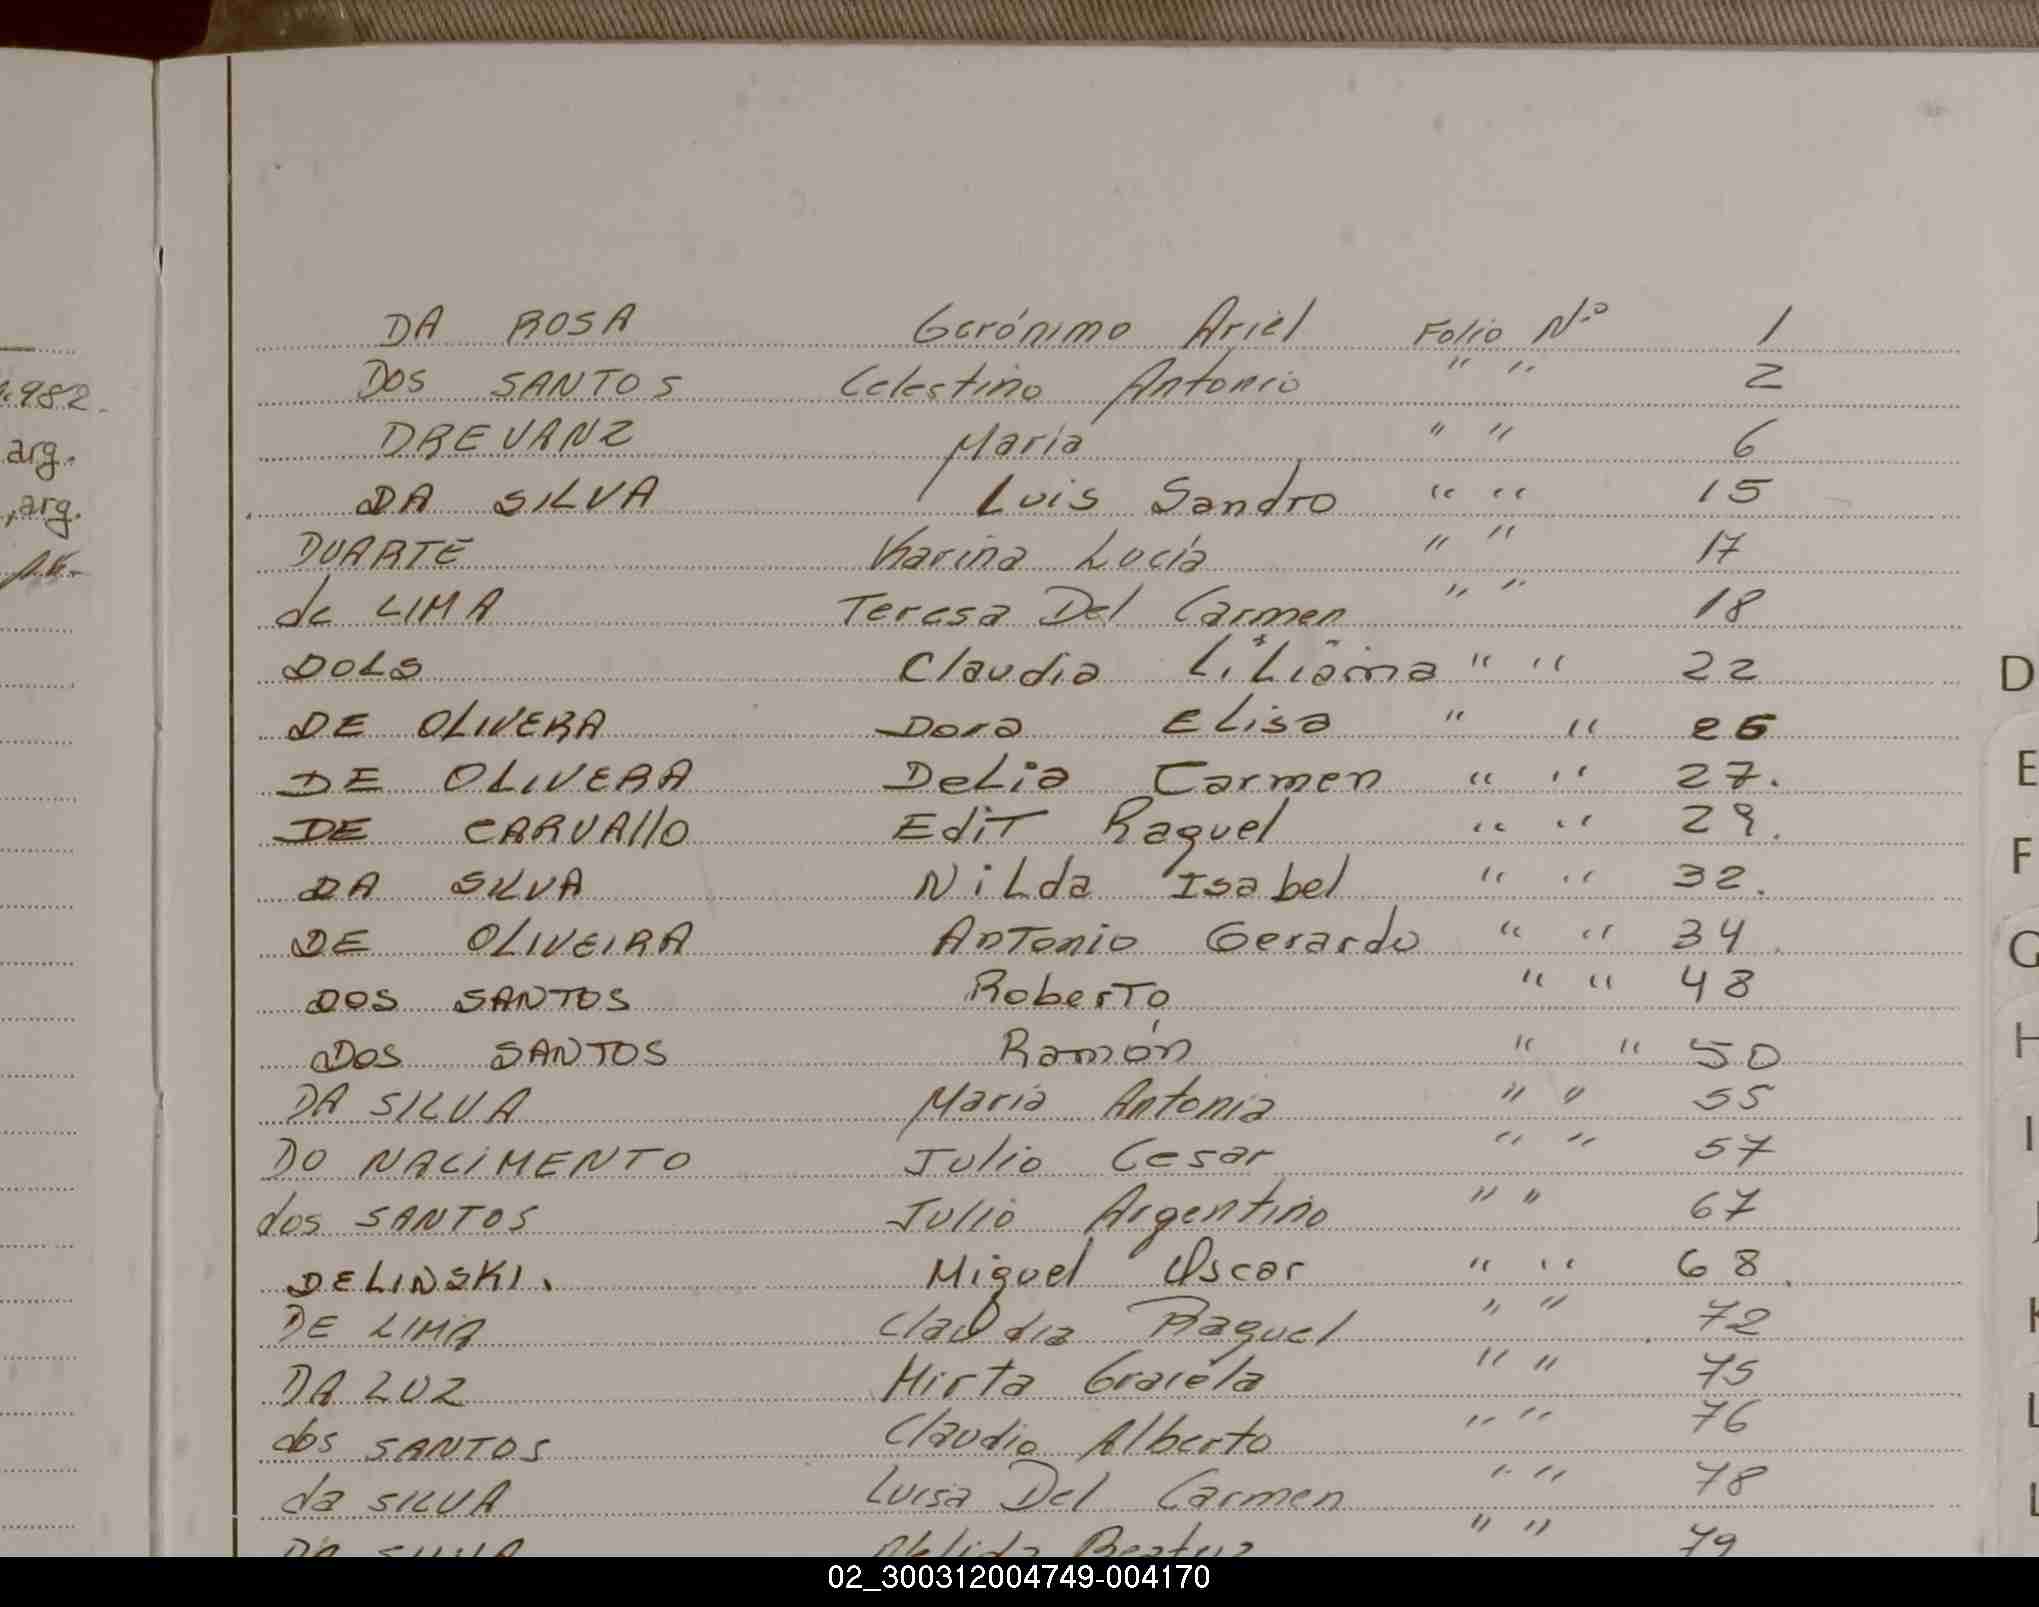 1.982.
arg.
, arg.
DA ROSA Gerónimo Ariel Folio N.º 1
DOS SANTOS Celestino Antonio " " 2
DREVANZ María " " 6
DA SILVA Luis Sandro " " 15
DUARTE Karina Lucía " " 17
de LIMA Teresa Del Carmen " " 18
DOLS Claudia Liliana " " 22
DE OLIVERA Dora Elisa " " 26
DE OLIVERA Delia Carmen " " 27.
DE CARVAllO Edit Raquel " " 29.
DA SILVA Nilda Isabel " " 32.
DE OLIVEIRA Antonio Gerardo " " 34.
DOS SANTOS Roberto " " 48
DOS SANTOS Ramón " " 50
DA SILVA María Antonia " " 55
DO NACIMENTO Julio Cesar " " 57
dos SANTOS Julio Argentino " " 67
DELINSKI. Miguel Oscar " " 68.
DE LIMA Claudia Raquel " " 72
DA LUZ Mirta Graciela " " 75
dos SANTOS Claudio Alberto " " 76
da SILVA Luisa Del Carmen " " 78
DA SILVA Nelida Beatriz " " 79
D
E
F
G
H
I
J
K
L
L
02_300312004749-004170